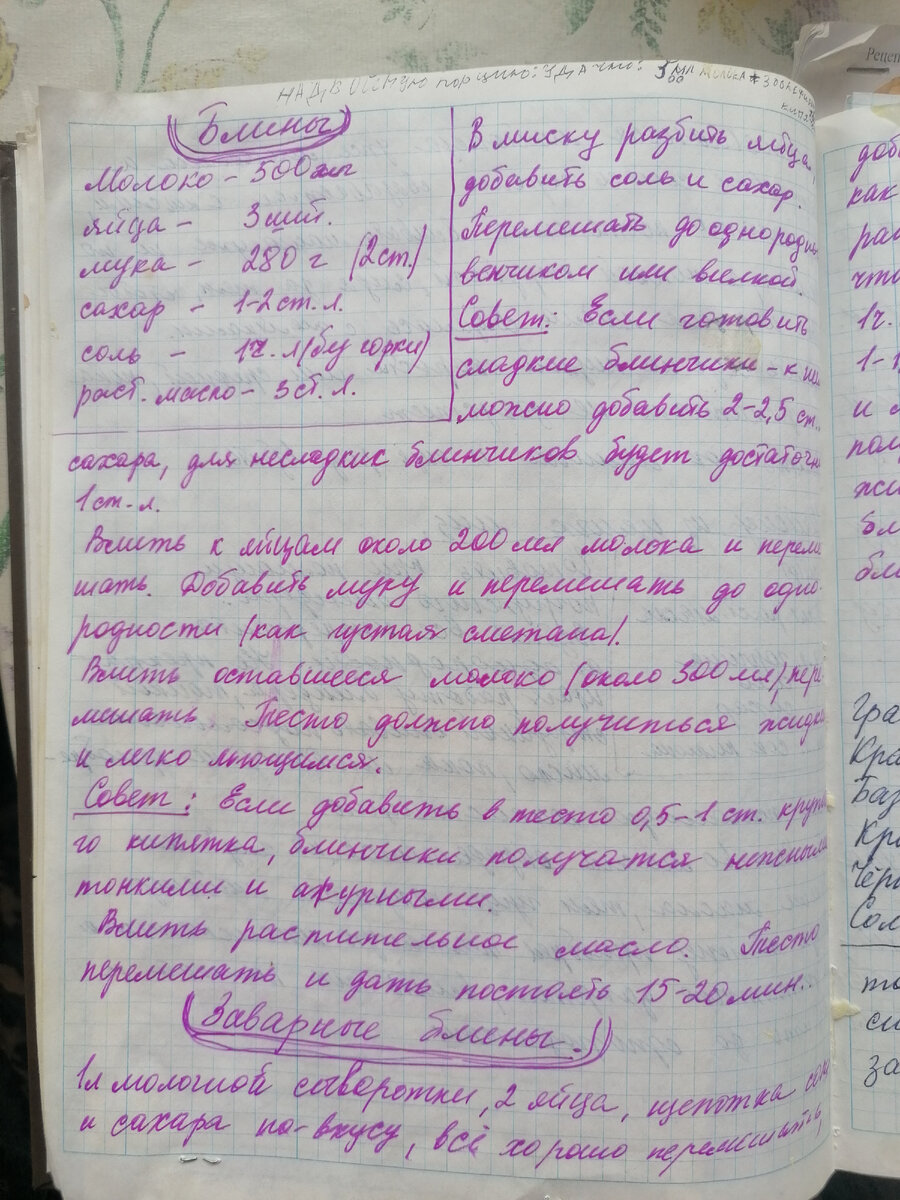 порцию:
Рецеп
Блины
Молоко - 500 мл
яйца - 3 шт.
мука - 280 г (2ст.)
сахар - 1-2 ст. л.
соль - 1 ч. л (без горки)
раст. масло - 3 ст. л.
В миску разбить яйца,
добавить соль и сахар.
Перемешать до однородн
венчиком или вилкой.
Совет: Если готовить
сладкие блинчики - к ним
можно добавить 2-2,5 ст.
сахара, для несладких блинчиков будет достаточн
1 ст. л.
Влить к яйцам около 200 мл молока и переме
шать. Добавить муку и перемешать до одно-
родности (как густая сметана).
Влить оставшееся молоко (около 300 мл), пере
мешать Тесто должно получиться жидки
и легко льющимся.
Совет: Если добавить в тесто 0,5-1 ст. круто
го кипятка, блинчики получатся нежными
тонкими и ажурными.
Влить растительное масло. Тесто
перемешать и дать постоять 15-20 мин..
Заварные блины.
1л молочной сыворотки, 2 яйца, щепотка соли
и сахара по-вкусу, всё хорошо перемешать,
доб
как
раз
что
1ч.
1-1
и
пол
жи
бл
бл
Гра
Кра
Баз
Кро
Чёр
Сол
то
си
за